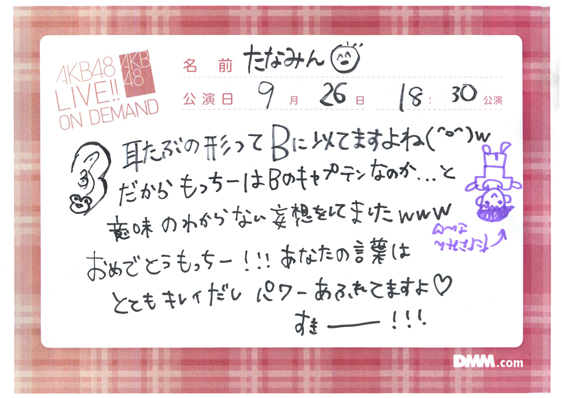 AKB48
LIVE!!
ON DEMAND
AKB
48
名前 たなみん
公演日 9月 26日 18:30公演
耳たぶの形ってBに似てますよね(^o^)w
だからもっちーはBのキャプテンなのか...と
意味のわからない妄想をしてましたwww
おめでとうもっちー!!!あなたの言葉は
とてもキレイだし パワーあふれてますよ♡
すきー!!!
DMM.com